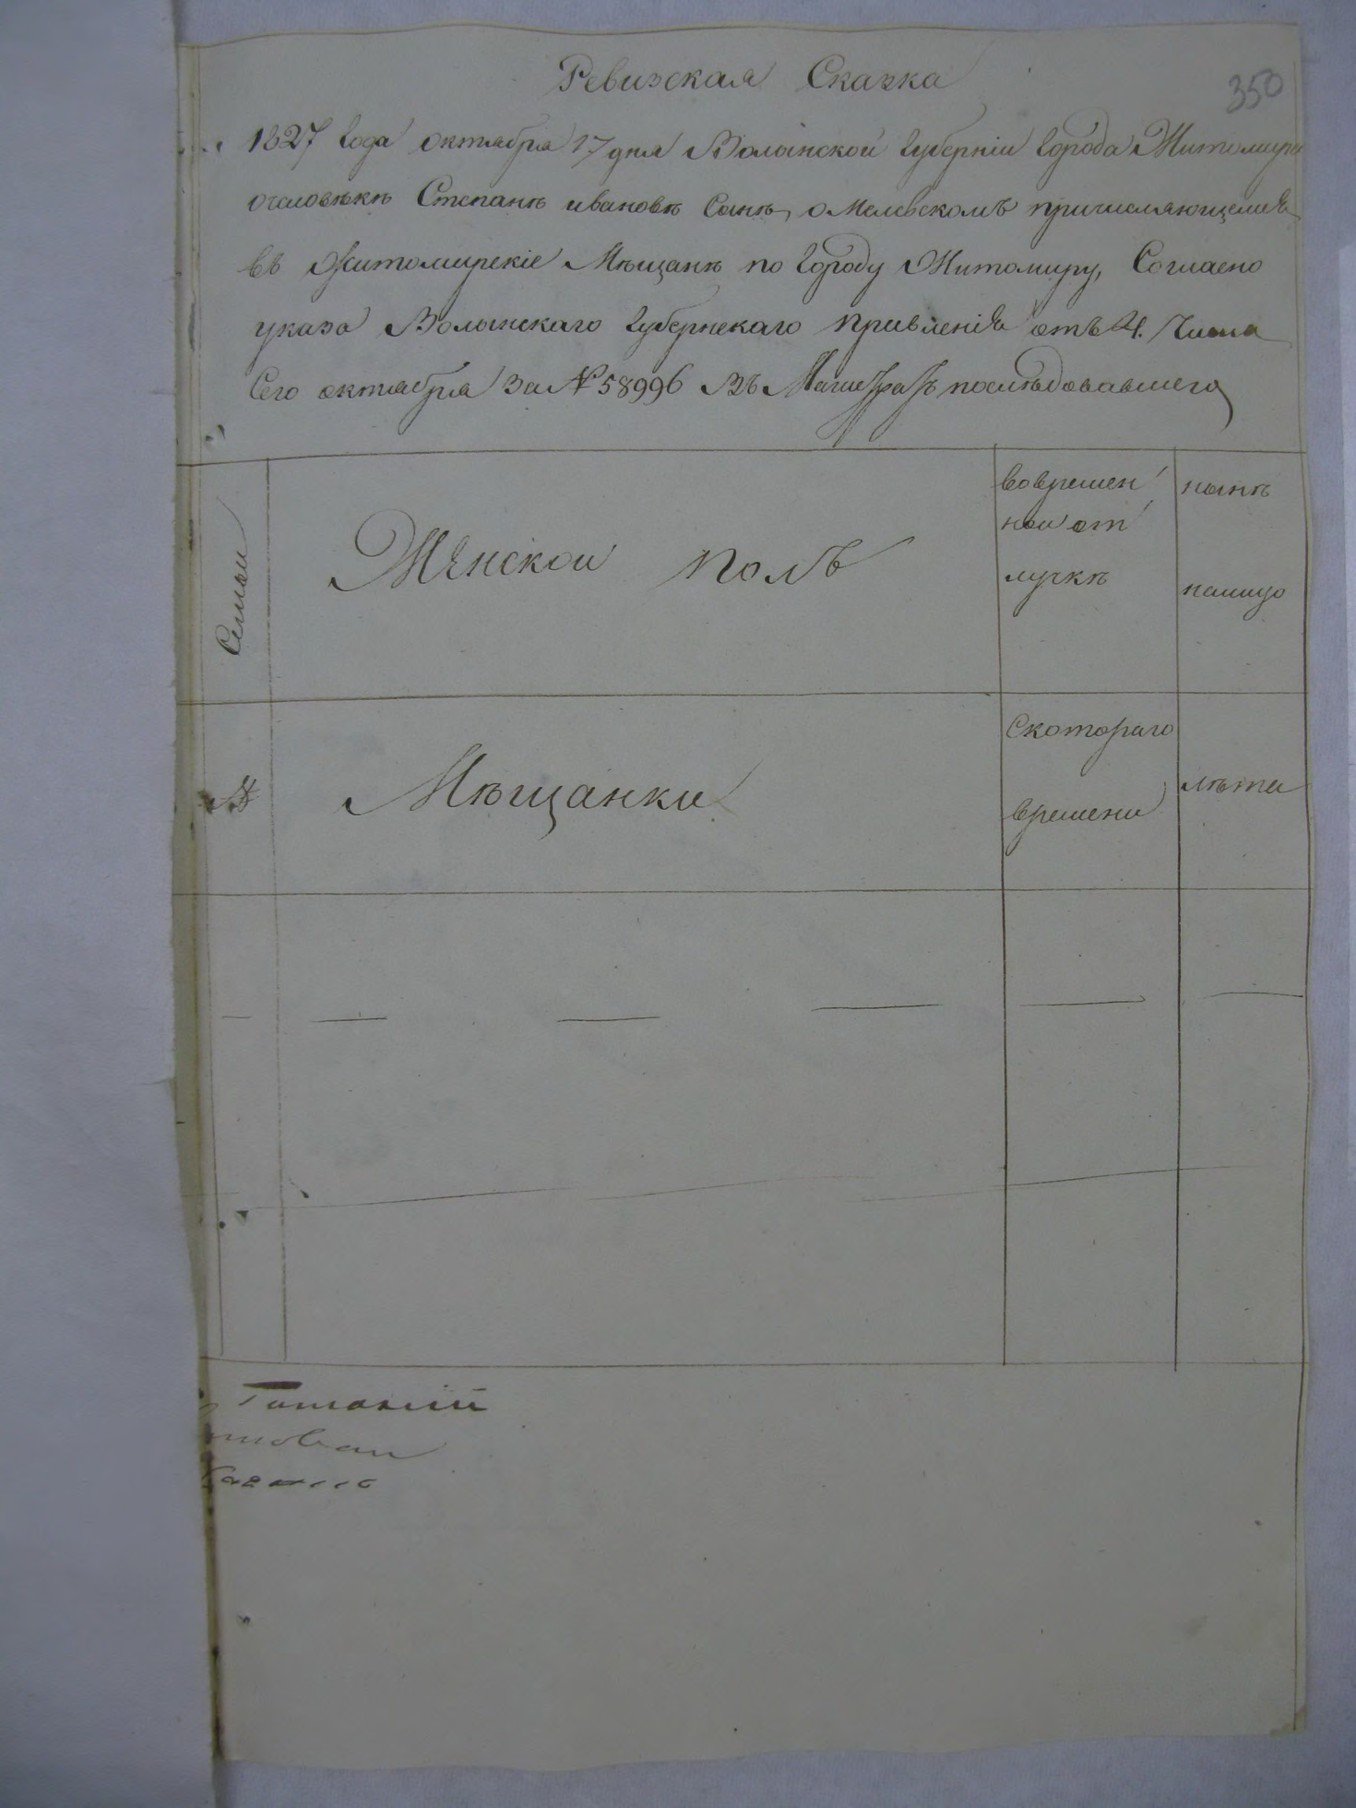 Ревизская Сказка
350
1827 года октября 17 дня Волынской губернiи города Житомира
очеловѣкѣ Степанѣ ивановѣ сынѣ, омелевскомъ причисляющемся
въ Житомирскiе Мѣщанѣ по городу Житомиру, Согласно
указа Волынскаго губернскаго правленiя отъ 4. Числа
Сего октября За № 58996 Въ Магистратъ послѣдовавшего
Семьи
Женскои полъ
вовремен
нои от
лучкѣ
нынѣ
налицо
№
Мѣщанки
Скотораго
времени
лѣта